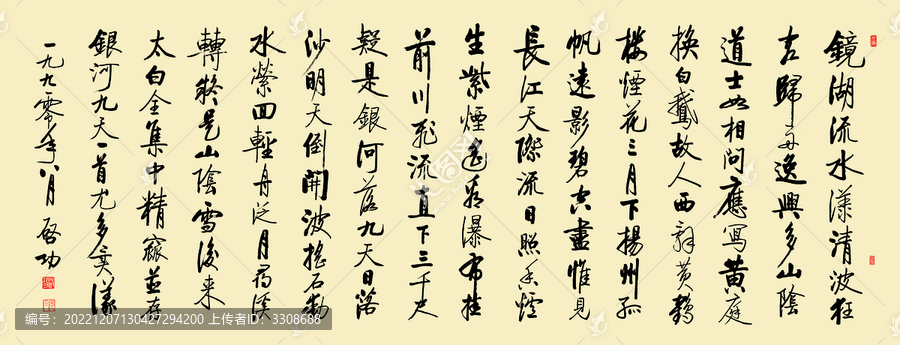 鏡湖流水漾清波狂
客歸舟逸興多山陰
道士如相問應寫黄庭
換白鵝故人西辭黄鶴
樓煙花三月下揚州孤
帆遠影碧空盡惟見
長江天際流日照香爐
生紫煙遙看瀑布挂
前川飛流直下三千尺
疑是銀河落九天日落
沙明天倒開波搖石動
水縈回輕舟泛月尋溪
轉疑是山陰雪後来
太白全集中精並存
銀河九天一首尤多漾
一九九零年八月 啓功
编号：20221207130427294200 上传者ID：3308688